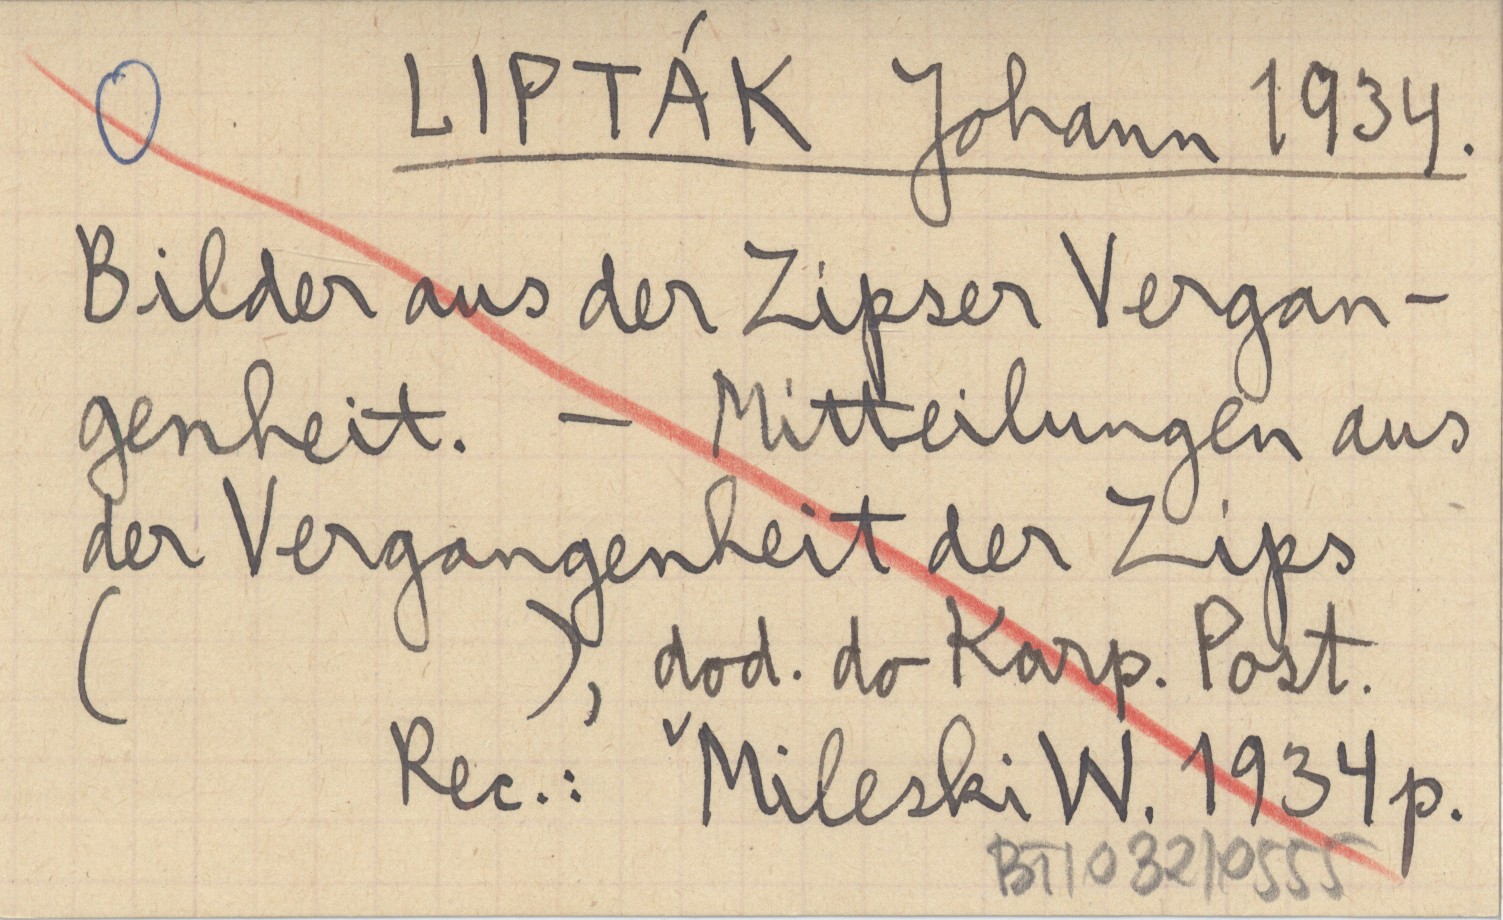 O LIPTÁK Johann 1934.
Bilder aus der Zipser Vergan-
genheit. – Mitteilungen aus
der Vergangenheit der Zips
( ), dod. do Karp. Post.
Rec.: ˇMileski W. 1934 p.
BT1032/0555